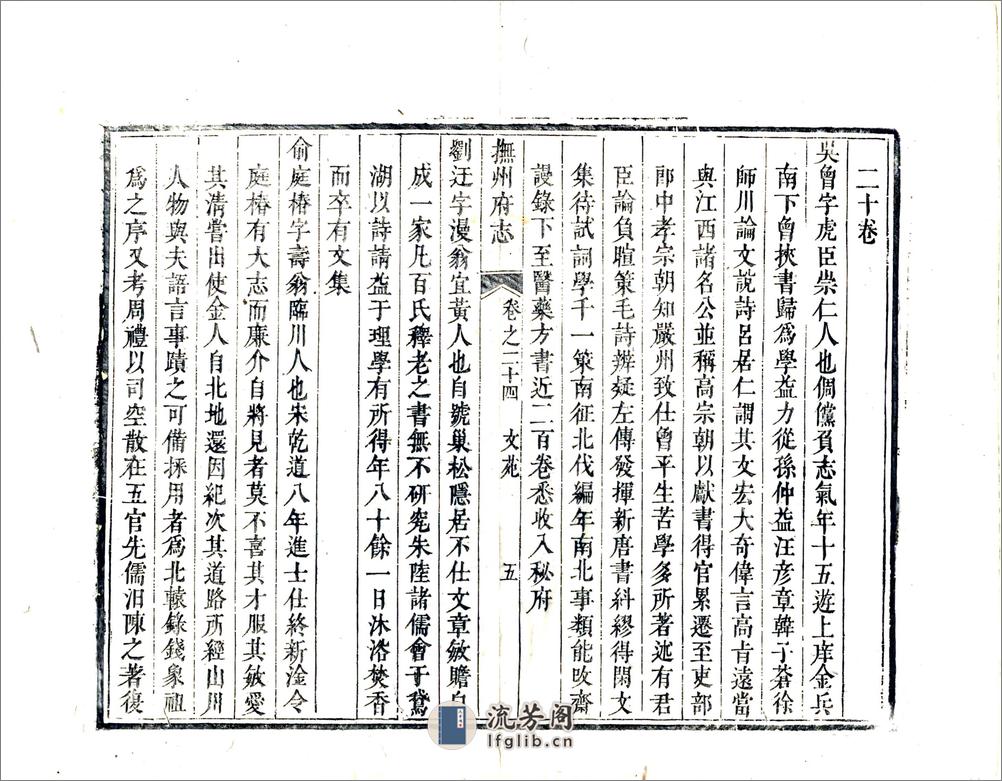 二十卷
吳曾字虎臣崇仁人也倜儻負志氣年十五遊上庠金兵
南下曾挾書歸爲學益力從孫仲益汪彦章韓子蒼徐
師川論文說詩呂居仁謂其文宏大奇偉言高肯遠當
與江西諸名公並稱高宗朝以獻書得官累遷至吏部
郎中孝宗朝知嚴州致仕曾平生苦學多所著述有君
臣論負暄策毛詩辨疑左傳發揮新唐書糾繆得閑文
集待試詞學千一策南征北伐編年南北事類能改齋
謾錄下至醫藥方書近二百卷悉收入秘府
撫州府志 卷之二十四 文苑 五
劉迂字漫翁宜黃人也自號巢松隱居不仕文章敏贍自
成一家凡百氏釋老之書無不研究朱陸諸儒會于鵞
湖以詩請益于理學有所得年八十餘一日沐浴焚香
而卒有文集
俞庭椿字壽翁臨川人也宋乾道八年進士仕終新淦令
庭椿有大志而廉介自將見者莫不喜其才服其敏愛
其清嘗出使金人自北地還因紀次其道路所經山川
人物與夫語言事蹟之可備採用者爲北轅錄錢象祖
爲之序又考周禮以司空散在五官先儒汩陳之著復
流芳阁
lfglib.cn